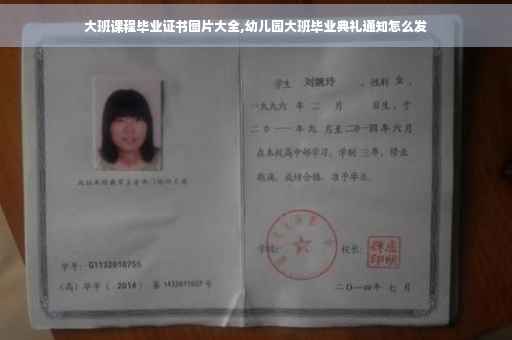 大班课程毕业证书图片大全,幼儿园大班毕业典礼通知怎么发
学生 刘婉玲 ,性别 女 ,
一九九六 年 二 月 日生,于
二〇一一年九 月至二〇一四年 六 月
在本校高中部学习,学制 三年,修业
期满,成绩合格,准予毕业。
学校: 校长:
学号: G1132010755
(高)毕字( 2014 )第 1432011027 号
二〇一四年 七 月